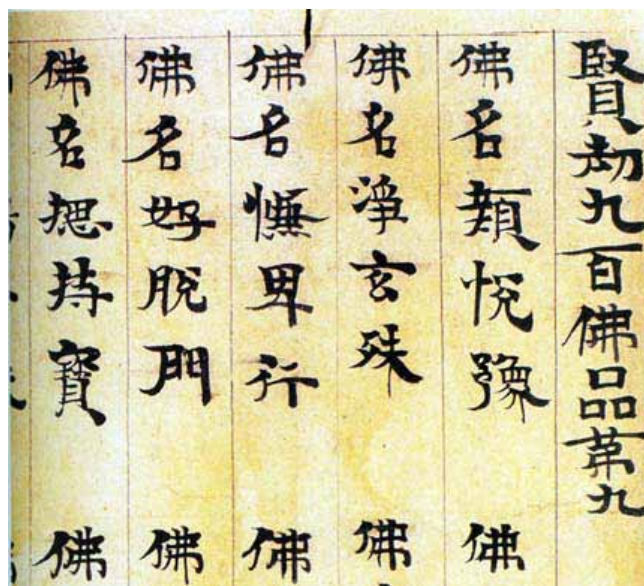 賢劫九百佛品第九
佛名類悦豫 佛
佛名淨玄殊 佛
佛名 卑行 佛
佛名好脱門 佛
佛名 持寶 佛